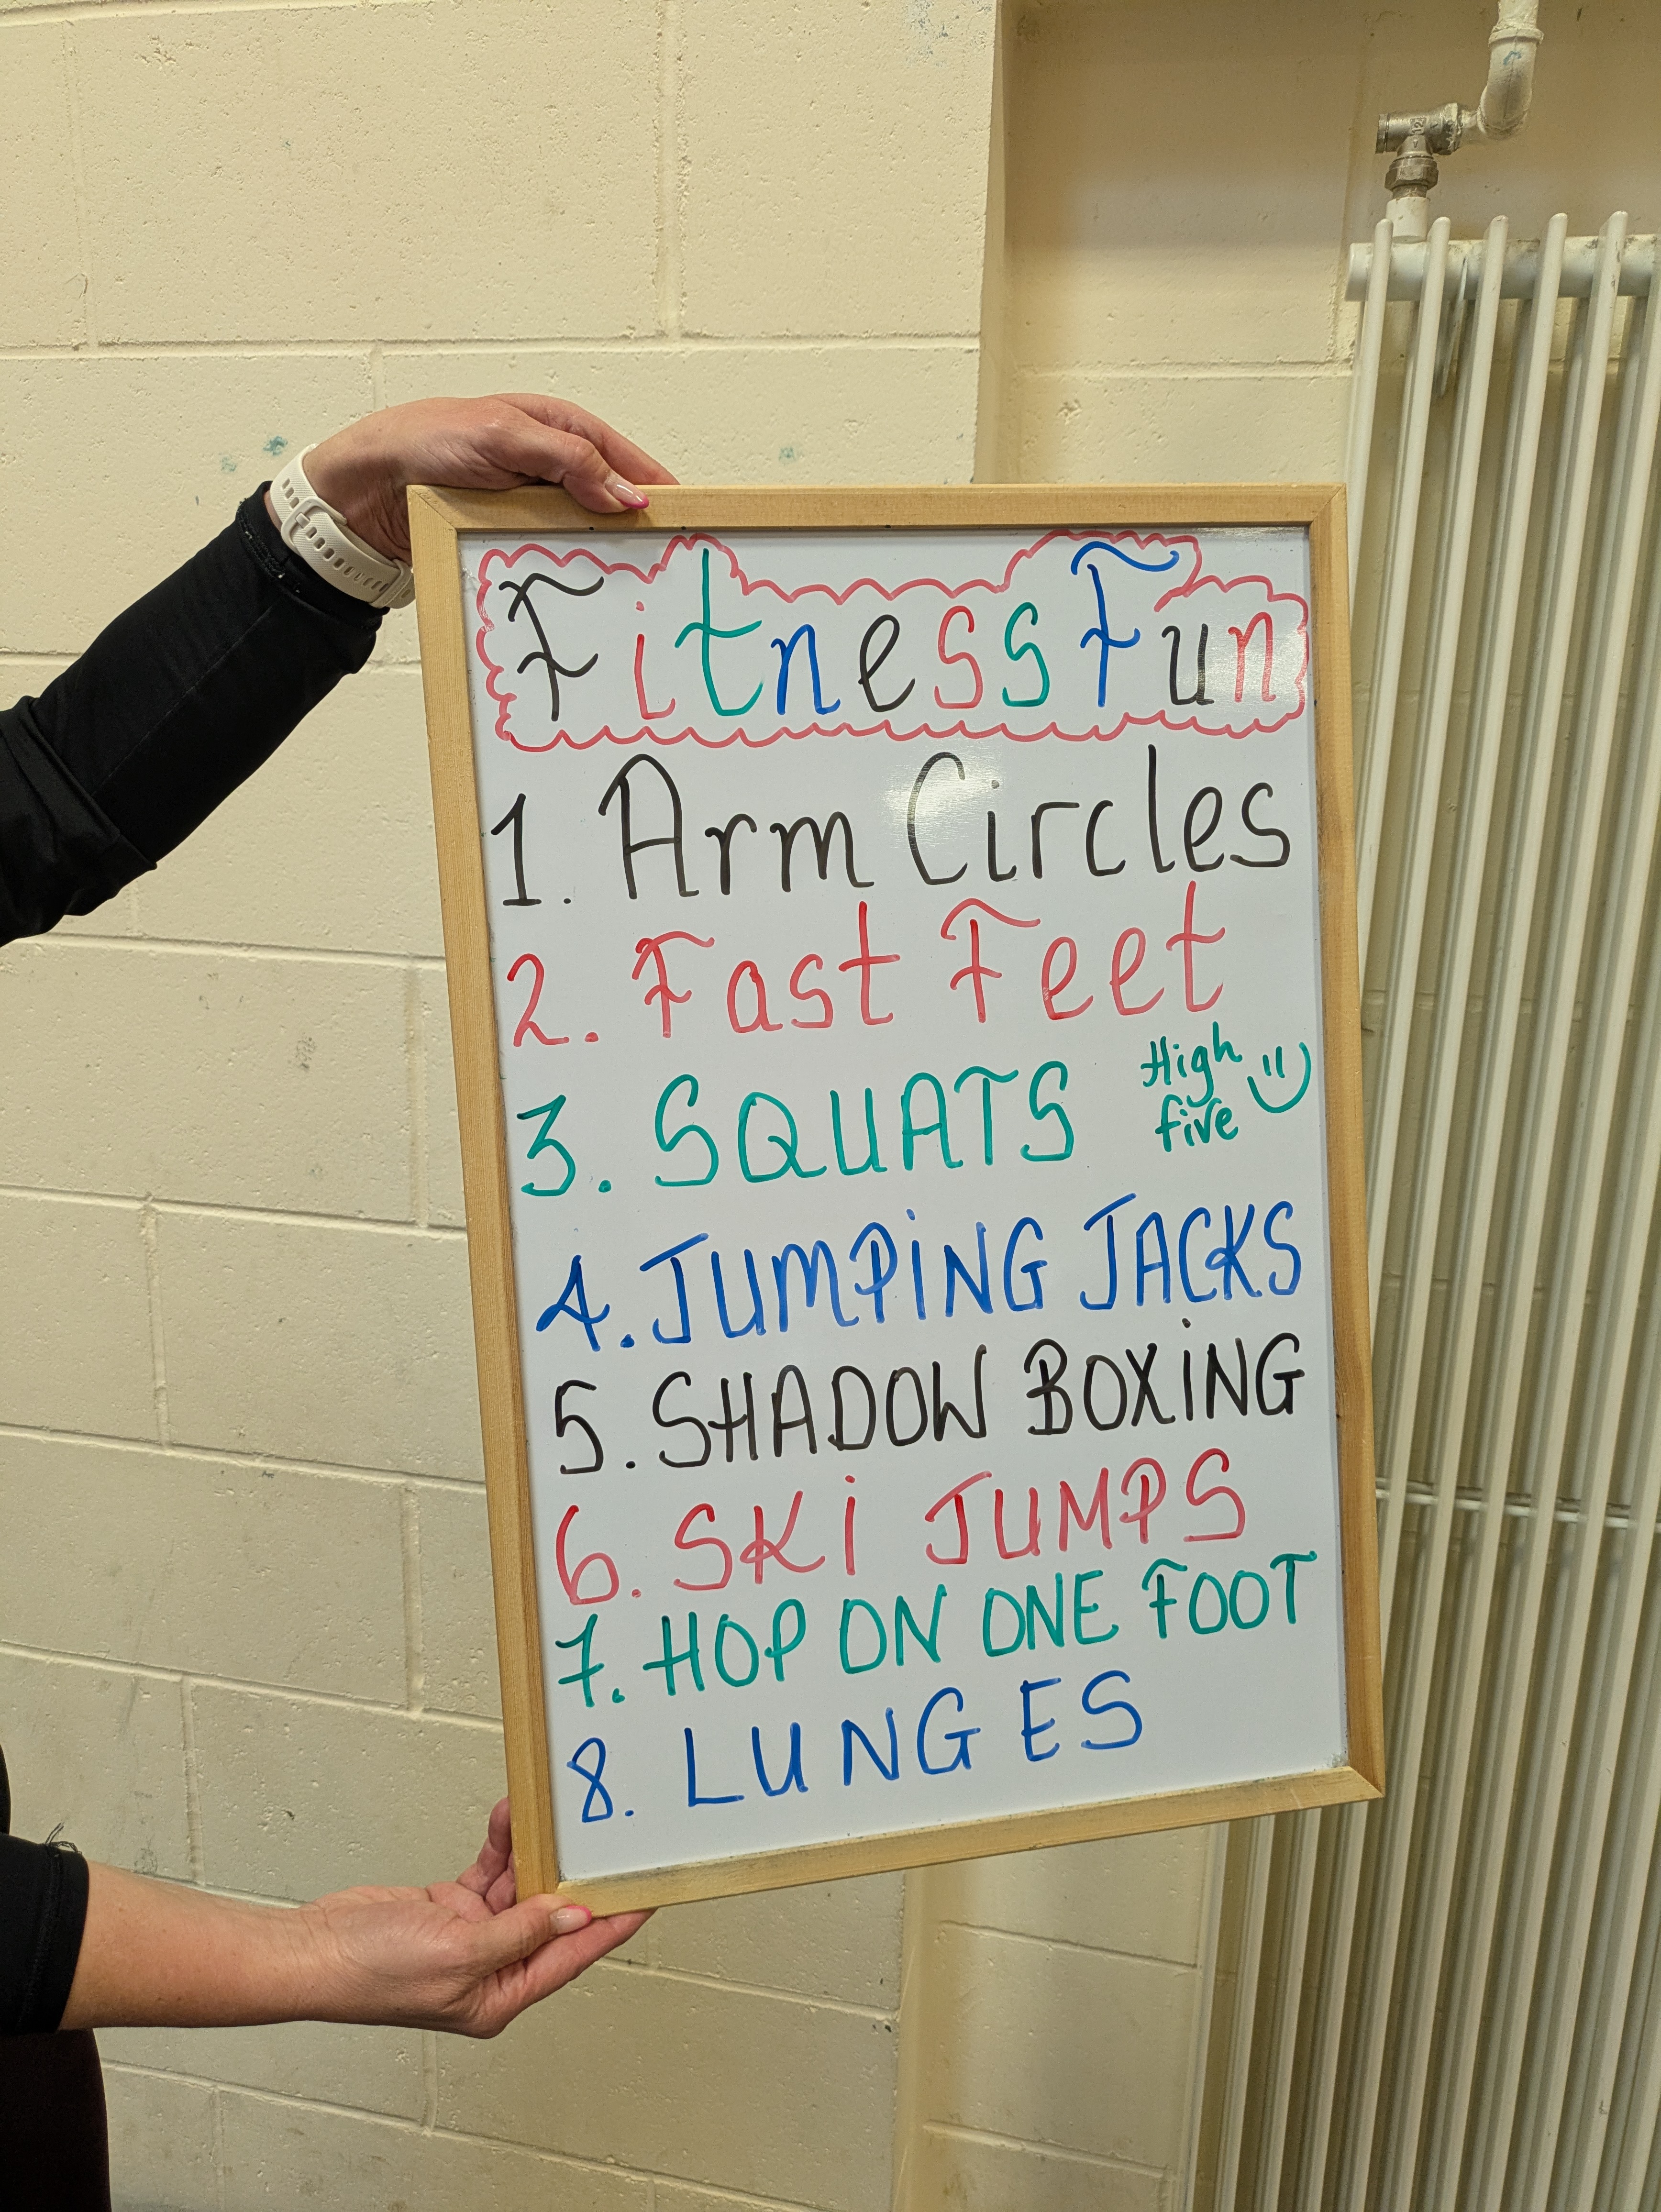 Fitness Fun
1. Arm Circles
2. Fast Feet
3. SQUATS High
five
4. JUMPiNG JACKS
5. SHADOW BOXiNG
6. SKi JUMPS
7. HOP ON ONE FOOT
8. LUNGES